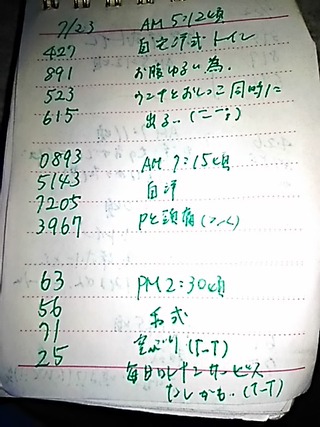 7/23 AM 5:12頃
427 自宅洋式トイレ
891 お腹ゆるい為、
523 ウンチとおしっこ同時に
615 出る..(ーー;)
0893 AM 7:15頃
5143 自洋
7205
3967 Pと頭痛
63 PM 2:30頃
56 和式
71 (T-T)
25 毎日
(T-T)